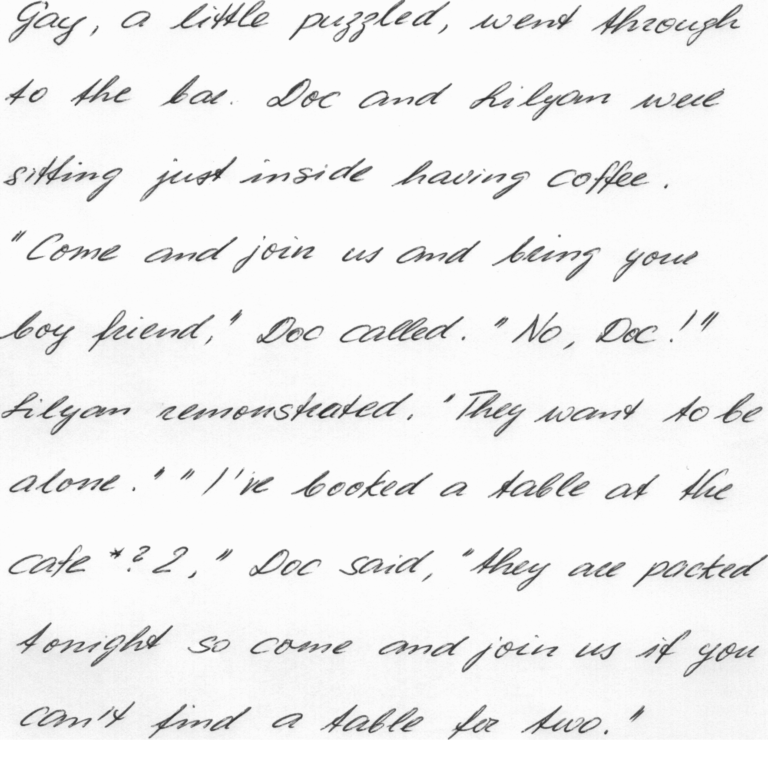 Gay, a little puzzled, went through
to the bar. Doc and Lilyan were
sitting just inside having coffee.
"Come and join us and bring your
boy friend," Doc called. "No, Doc!"
Lilyan remonstrated. "They want to be
alone." "I've booked a table at the
cafe *? 2," Doc said, "they are packed
tonight so come and join us if you
can't find a table for two."